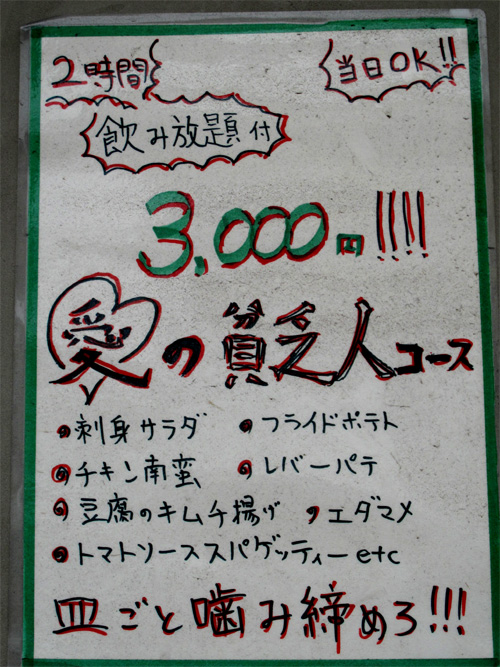 2時間
当日OK!!
飲み放題付
3,000円!!!!
愛の貧乏人コース
・刺身サラダ ・フライドポテト
・チキン南蛮 ・レバーパテ
・豆腐のキムチ揚げ ・エダマメ
・トマトソーススパゲッティーetc
皿ごと噛み締めろ!!!